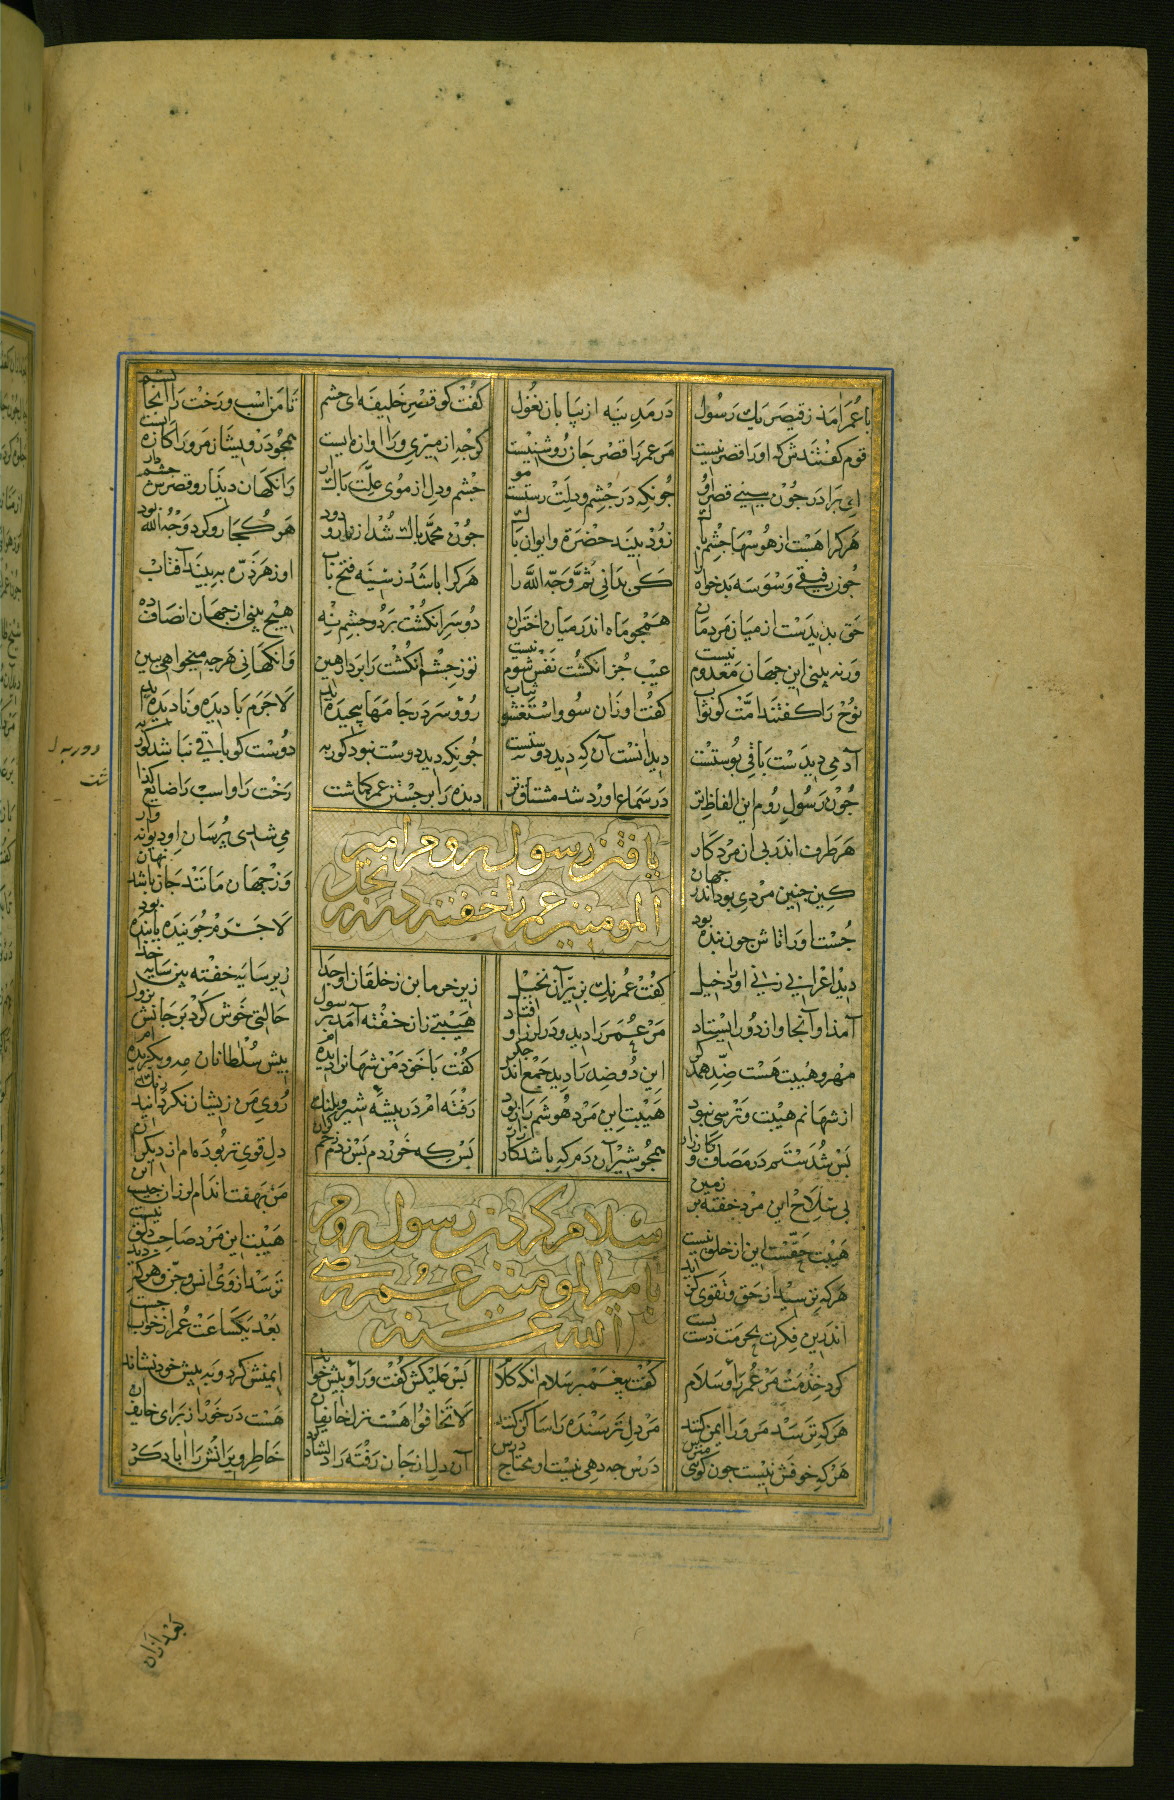 با عمر آمد ز قیصر یک رسول در مدینه از بیابان نغول کفت کو قصر خلیفه ای حشم تا من اسب و رخت را آنجا کشم
قوم کفتندش که او را قصر نیست مر عمر را قصر جان روشنیست کرچه از میری ورا اوازه ایست همچو درویشان مر ورا کازه ایست
ای برادر چون ببینی قصر او چونکه در چشم و دلت رستست مو چشم و دل از موی علت پاک ار وانکهان دیدار قصرش چشم دار
هر کرا هست از هوسها چشم پاک زود بیند حضرة و ایوان پاک چون محمد پاک شد از نار و دود هر کجا رو کرد وجه الله بود
چون رفیقی وسوسه بدخواه را کی بدانی ثم وجه الله را هر کرا باشد ز سینه فتح باب او ز هر ذره ببیند آفتاب
حق پدیدست از میان مردمان همچو ماه اندر میان اختران دو سر انکشت بر دو چشم نه هیچ بینی از جهان انصاف ده
ور نه بینی این جهان معدوم نیست عیب جز انکشت نفس شوم نیست تو ز چشم انکشت را بردار هین وانکهانی هرچه میخواهی ببین
نوح را کفتند امت کو ثواب کفت او زان سو واستغشو ثیاب رو و سر در جامها پیچیده اید لاجرم با دیده و نادیده اید
آدمی دیدست باقی پوستست دید آنست آن که دید دوستست چونکه دید دوست نبود کور به دوست کو باقی نباشد
چون رسول روم این الفاظ تر در سماع اورد شد مشتاق تر دیده را بر جستن عمر کماشت رخت را و اسب را ضایع کذاشت
هر طرف اندر پی آن مرد کار می شدی پرسان او دیوانه وار
یافتن رسول روم امیر
کین چنین مردی بود اندر جهان وز جهان مانند جان باشد نهان
المومنین عمر را خفته در زیر نخل
جست او را تاش چون بنده بود لاجرم جوینده یابنده بود
دید اعرابی زنی او را دخیل کفت عمر نک بزیر آن نخیل زیر خرما بن ز خلقان او جدا زیر سایه خفته بین سایه خدا
آمد او آنجا و از دور ایستاد مر عمر را دید و در لرز او فتاد هیبتی زان خفته آمد بر رسول حالتی خوش کرد بر جانش نزول
مهر و هیبت هست ضد همدکر این دو ضد را دید جمع اندر جکر کفت با خود من شهانرا دیده ام پیش سلطانان مه و بکزیده ام
از شهانم هیبت و ترسی نبود هیبت این مرد هوشم را ربود رفته ام در بیشه شیر و پلنک روی من زیشان نکردانید رنک
بس شدستم در مصاف و کارزار همچو شیر آن دم که باشد کار زار بس که خوردم بس زدم زخم کران دل قوی تر بوده ام از دیکران
بی سلاح این مرد خفته بر زمین من بهفت اندام لرزان چیست این
سلام کردن رسول روم
هیبت حقست این از خلق نیست هیبت این مرد صاحب دلق نیست
بامیر المومنین عمر رضی
هر که ترسید از حق و تقوی کزید ترسد از وی انس و جن و هرکه دید
الله عنه
اندرین فکرت بحرمت دست بست بعد یکساعت عمر از خواب جست
کرد خدمت مر عمر را و سلام کفت پیغمبر سلام انکه کلام پس علیکش کفت و را و پیش خواند ایمنش کرد و به پیش خود نشاند
هر که ترسد مر ورا ایمن کنند مر دل ترسنده را ساکن کنند لا تخافوا هست نزل خایفان هست در خور از برای خایف آن
هر که خوفش نیست چون کویی مترس درس چه دهی نیست او محتاج درس آن دل از جان رفته را دلشاد کرد خاطر ویرانش را اباد کرد
بعد ازان